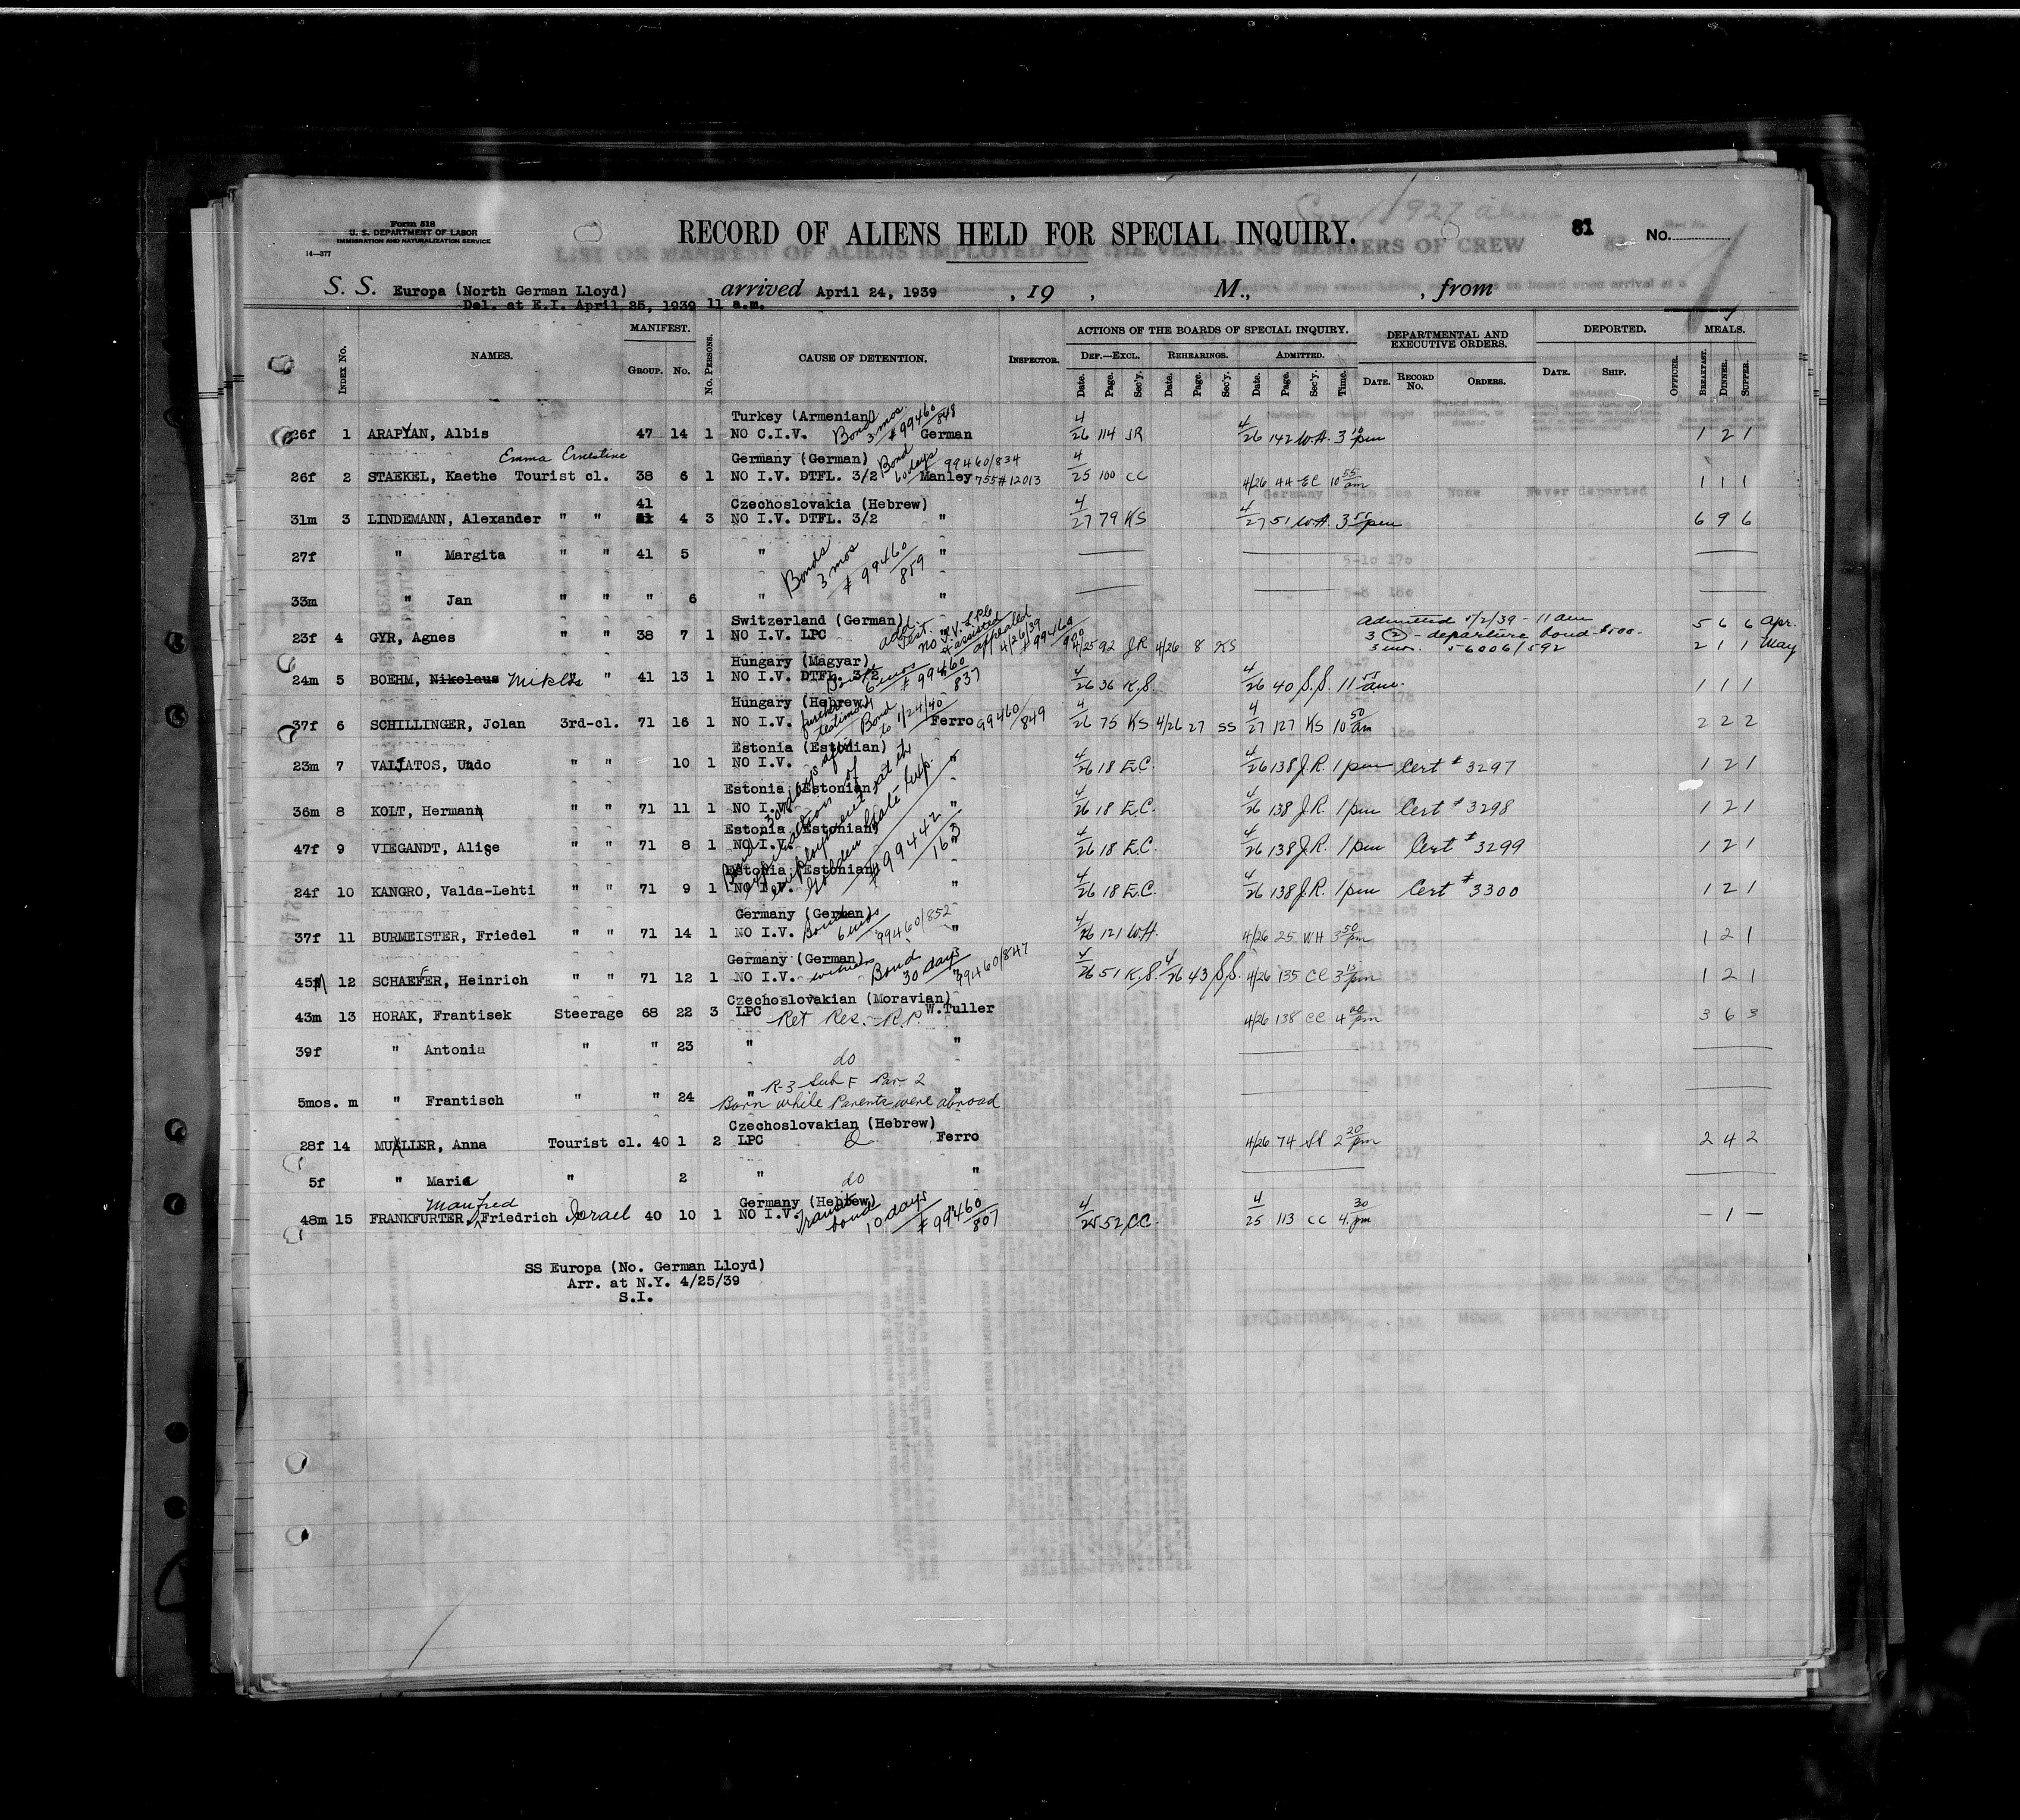 Form 518
U. S. DEPARTMENT OF LABOR
IMMIGRATION AND NATURALIZATION SERVICE
14—377
RECORD OF ALIENS HELD FOR SPECIAL INQUIRY.
81 No.
S. S. Europa (North German Lloyd) arrived April 24, 1939 , 19 , M., , from
Del. at E.I. April 25, 1939 11 a.m.
Index No. NAMES. MANIFEST. Group. No. No. Persons. CAUSE OF DETENTION. Inspector. ACTIONS OF THE BOARDS OF SPECIAL INQUIRY. DEPARTMENTAL AND EXECUTIVE ORDERS. DEPORTED. MEALS.
Def.—Excl. Rehearings. Admitted.
Date. Page. Sec'y. Date. Page. Sec'y. Date. Page. Sec'y. Time. Date. Record No. Orders. Date. Ship. Officer. Breakfast. Dinner. Supper.
Turkey (Armenian)
26f 1 ARAPYAN, Albis 47 14 1 NO C.I.V. Bond 3 mos. # 99460/848 German 4/26 114 JR 4/26 142 W.H. 3 10 pm 1 2 1
Emma Ernestine
Germany (German)
26f 2 STAEKEL, Kaethe Tourist cl. 38 6 1 NO I.V. DTFL. 3/2 Bond 60 days 99460/834 Manley 755#12013 4/25 100 CC 4/26 44 EC 10 55 am 1 1 1
41 Czechoslovakia (Hebrew)
31m 3 LINDEMANN, Alexander " " 4 3 NO I.V. DTFL. 3/2 " 4/27 79 KS 4/27 51 W.H. 3 55 pm 6 9 6
27f " Margita " " 41 5 " Bonds 3 mos # 99460/859 "
33m " Jan " " " 6 " "
Switzerland (German)
23f 4 GYR, Agnes " " 38 7 1 NO I.V. LPC add. test. no I.V. & assisted appealed 4/26/39 # 99460 4/25 92 JR 4/26 8 KS Admitted 5/2/39 - 11 am 5 6 6 Apr.
3 (2) - departure bond $500- 3 mos. 56006/592 2 1 1 May
Hungary (Magyar)
24m 5 BOEHM, Nikolaus Miklos " " 41 13 1 NO I.V. DTFL. 3/2 6 mos # 99460/837 4/26 36 K.S. 4/26 40 S.S. 11 55 am. 1 1 1
Hungary (Hebrew)
37f 6 SCHILLINGER, Jolan 3rd-cl. 71 16 1 NO I.V. further testimony Bond to 1/24/40 Ferro 99460/849 4/26 75 KS 4/26 27 SS 4/27 127 KS 10 50 am 2 2 2
Estonia (Estonian)
23m 7 VALJATOS, Undo " " 10 1 NO I.V. " 4/26 18 E.C. 4/26 138 J.R. 1 pm Cert # 3297 1 2 1
Estonia (Estonian)
36m 8 KOLT, Hermann " " 71 11 1 NO I.V. " 4/26 18 E.C. 4/26 138 J.R. 1 pm Cert # 3298 1 2 1
Estonia (Estonian)
47f 9 VIEGANDT, Alice " " 71 8 1 NO I.V. " 4/26 18 E.C. 4/26 138 J.R. 1 pm Cert # 3299 1 2 1
Estonia (Estonian)
24f 10 KANGRO, Valda-Lehti " " 71 9 1 NO I.V. " 4/26 18 E.C. 4/26 138 J.R. 1 pm Cert # 3300 1 2 1
Bond 30 days after expiration of employment at the Golden Gate Exp. # 99442/163
Germany (German)
37f 11 BURMEISTER, Friedel " " 71 14 1 NO I.V. Bond 6 mos 99460/852 " 4/26 121 W.H. 4/26 25 WH 3 50 pm 1 2 1
Germany (German)
45M 12 SCHAEFER, Heinrich " " 71 12 1 NO I.V. witness Bond 30 days 99460/847 " 4/26 51 K.S. 4/26 43 S.S. 4/26 135 CC 3 15 pm 1 2 1
Czechoslovakian (Moravian)
43m 13 HORAK, Frantisek Steerage 68 22 3 LPC Ret Res.- R.P. W.Tuller 4/26 138 CC 4 00 pm 3 6 3
39f " Antonia " " 23 " do "
5mos. m " Frantisch " " 24 " R-3 Sub F Par. 2 "
Born while Parents were abroad
Czechoslovakian (Hebrew)
28f 14 MULLER, Anna Tourist cl. 40 1 2 LPC Ferro 4/26 74 SS 2 20 pm 2 4 2
5f " Maria " 2 " do "
Manfred Germany (Hebrew)
48m 15 FRANKFURTER, Friedrich Israel 40 10 1 NO I.V. Transit bond 10 days # 99460/807 4/25 52 C.C. 4/25 113 CC 4 30 pm - 1 -
SS Europa (No. German Lloyd)
Arr. at N.Y. 4/25/39
S.I.